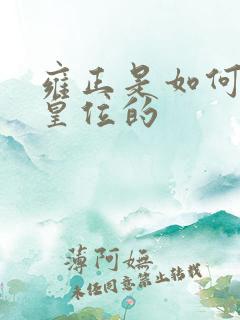 雍正是如何
皇位的
薄阿嫵
未经同意禁止转载